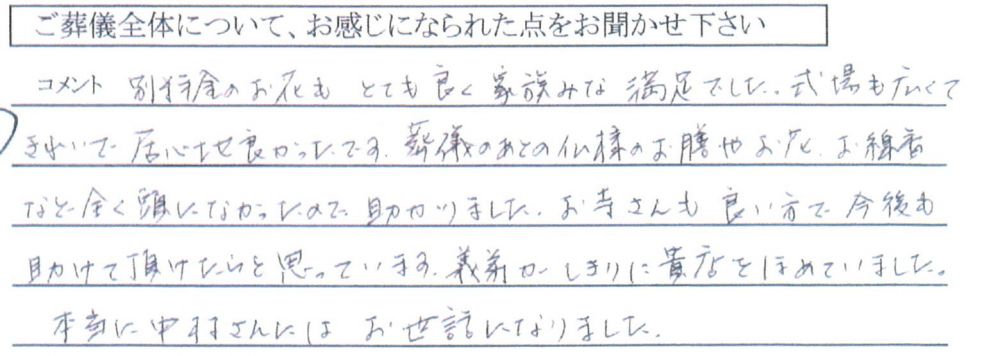 ご葬儀全体について、お感じになられた点をお聞かせ下さい
コメント 別注のお花も とても良く 家族みな 満足でした。式場も広くて
きれいで 居心地良かったです。葬儀のあとの仏様のお膳やお花、お線香
など全く頭になかったので 助かりました。お寺さんも 良い方で 今後も
助けて頂けたらと思っています。義弟がしきりに貴店をほめていました。
本当に中村さんには お世話になりました。